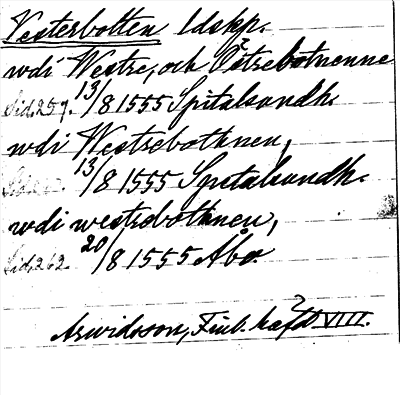 Vesterbotten ldskp.
wdi Westre, och Östrebotnenne
Sid. 257. 13/8 1555 Spitalsundh.
wdi Westrebothnen,
13/8 1555 Spitalsundh.
wdi westrebothnen,
Sid. 262. 20/8 1555 Åbo.
Arwidsson, Finl. häfd. VIII.